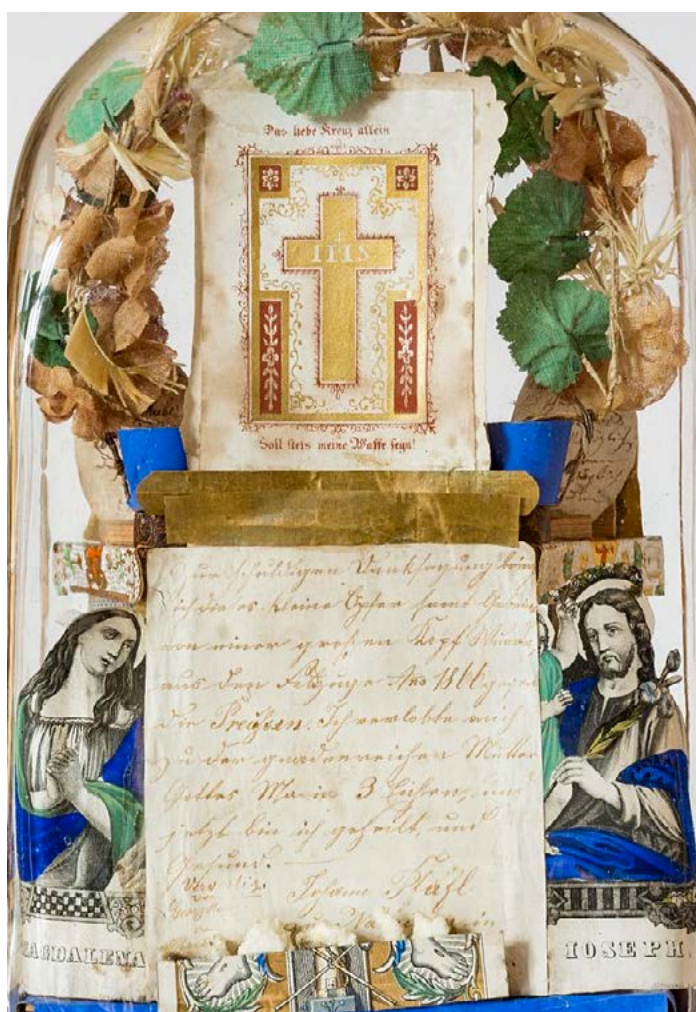 Das liebe Kreuz allein
IHS
Soll stets meine Waffe seyn!
Zur schuldigen Danksagung bring
ich dieses kleine Opfer samt Gebein
von einer großen Kopf Wunde
aus den Feldzuge Ano 1866 gegen
die Preißen. Ich verlobte mich
zu der gnadenreichen Mutter
Gottes Maria 3 Eichen, und
jetzt bin ich geheilt, und
Gesund.
Johann
MAGDALENA
IOSEPH